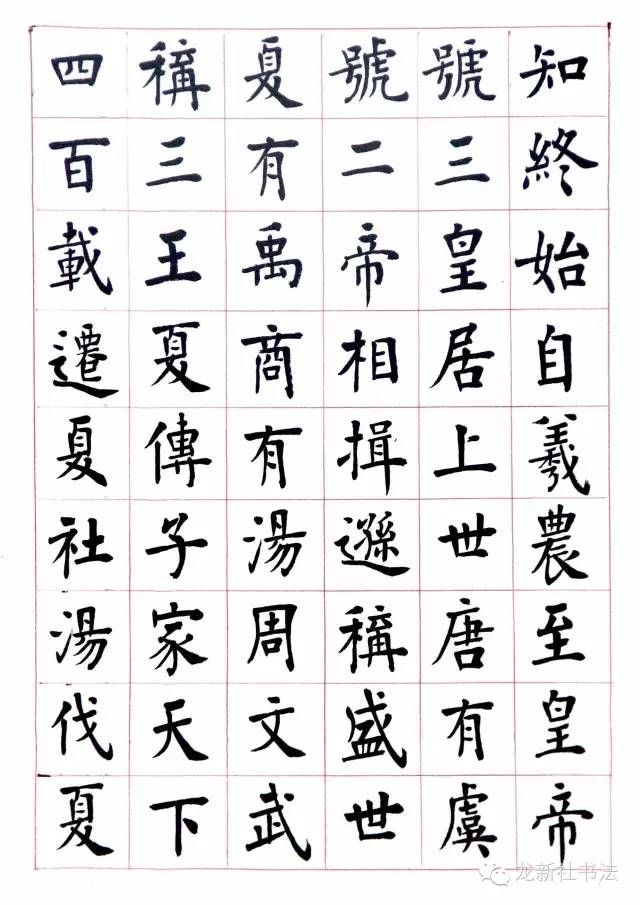 知終始自羲農至皇帝
號三皇居上世唐有虞
號二帝相揖遜稱盛世
夏有禹商有湯周文武
稱三王夏傳子家天下
四百載遷夏社湯伐夏
龙新社书法